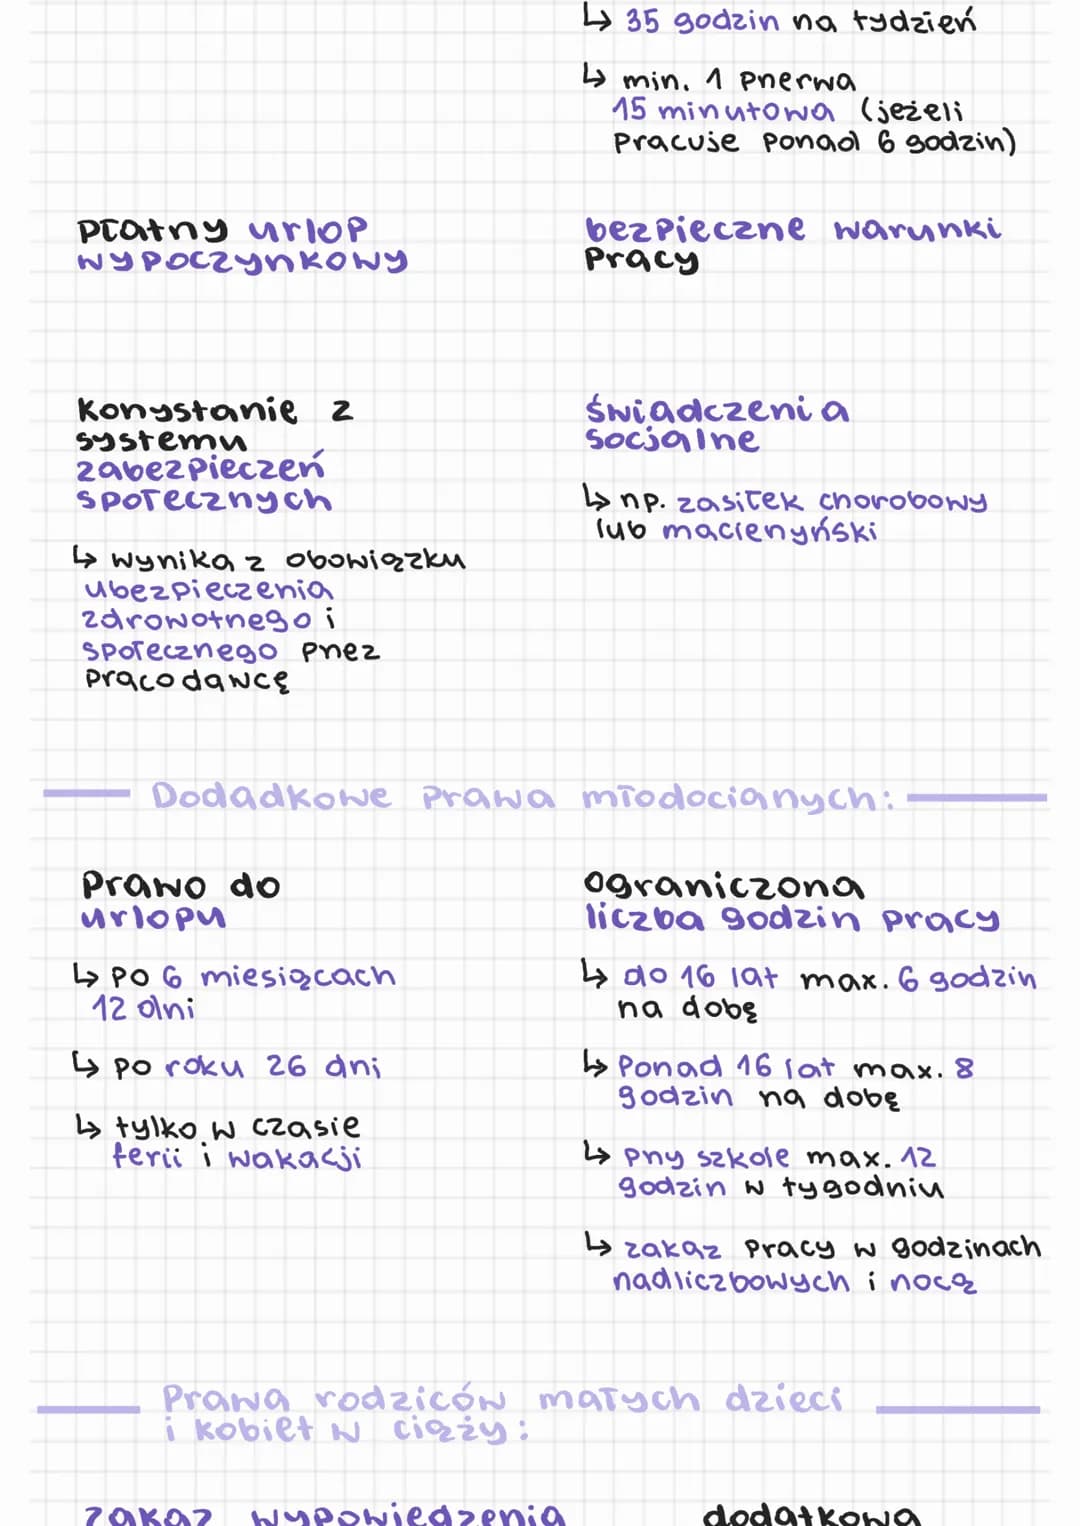 ↳ 35 godzin na tydzień
↳ min. 1 przerwa
15 minutowa (jeżeli
pracuje ponad 6 godzin)
płatny urlop
wypoczynkowy
bezpieczne warunki
pracy
korzystanie z
systemu
zabezpieczeń
społecznych
↳ wynika z obowiązku
ubezpieczenia
zdrowotnego i
społecznego przez
pracodawcę
świadczenia
socjalne
↳ np. zasiłek chorobowy
lub macierzyński
Dodadkowe prawa młodocianych:
prawo do
urlopu
↳ po 6 miesiącach
12 dni
↳ po roku 26 dni
↳ tylko w czasie
ferii i wakacji
ograniczona
liczba godzin pracy
↳ do 16 lat max. 6 godzin
na dobę
↳ ponad 16 lat max. 8
godzin na dobę
↳ przy szkole max. 12
godzin w tygodniu
↳ zakaz pracy w godzinach
nadliczbowych i nocą
Prawa rodziców małych dzieci
i kobiet w ciąży:
zakaz wypowiedzenia
dodatkowa